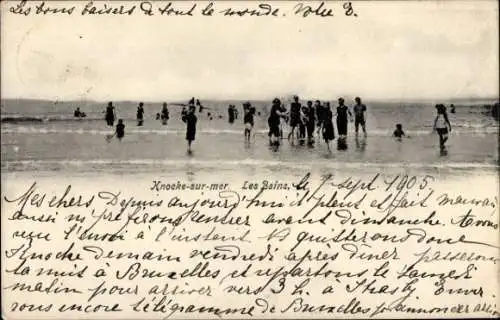 Les bons baisers à tout le monde. Votre E.
Knocke-sur-mer Les Bains, le 7 sept 1905
Mes chers Depuis aujourd'hui il pleut et fait mauvais
aussi n/ préférons rentrer avant dimanche. avous
l'envoi à l'instant. N/ quitterons donc
Knocke demain vendredi après diner passerons
la nuit à Bruxelles et repartons le Samedi
matin pour arriver vers 3 h. à Strasbg Enver
vous encore télégramme de Bruxelles p/ annoncer